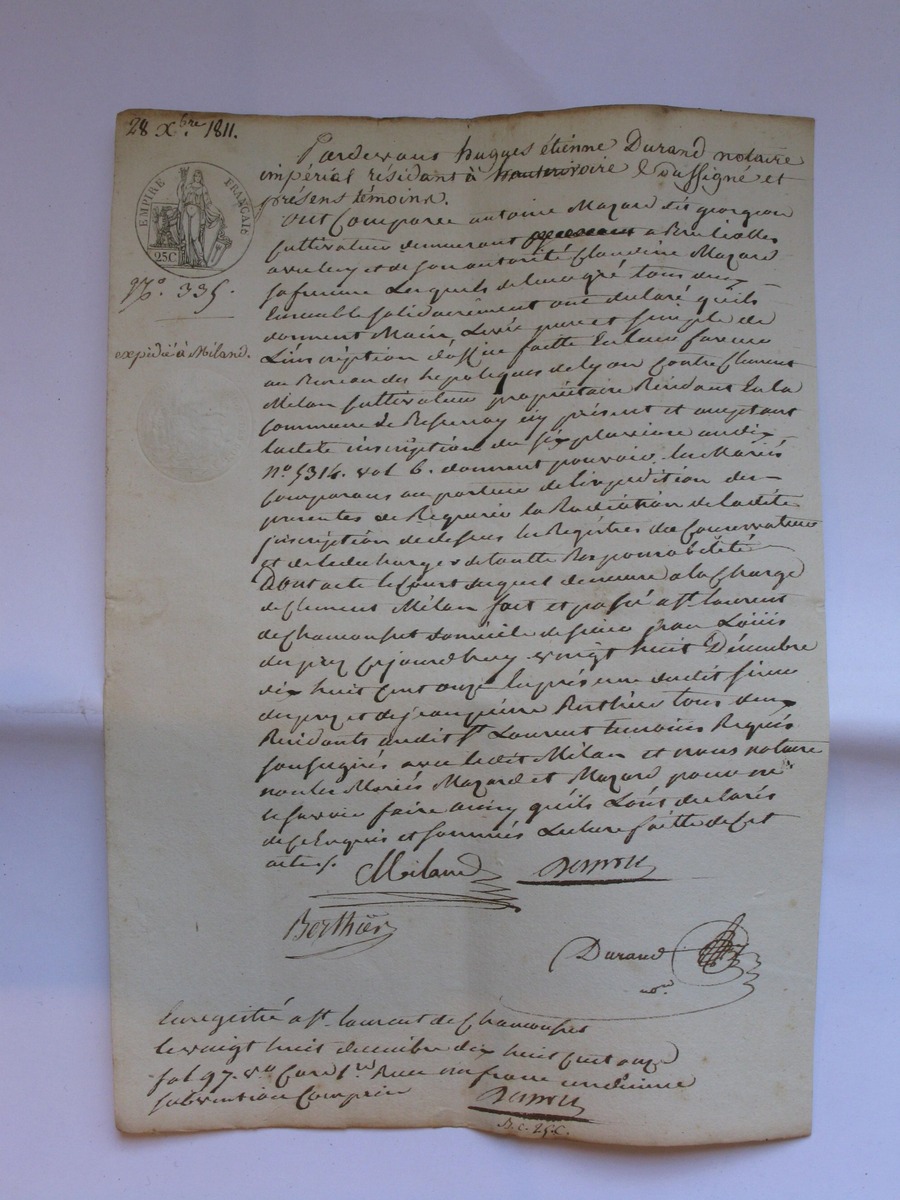 28 Xbre 1811.
EMPIRE FRANÇAIS
25C
N.° 335.
expédié à Miland.
Pardevant hugues étienne Durand notaire
impérial résidant à hauterivoire Soussigné et
présens témoins.
Ont Comparu antoine Mazard dit georgeon
Cultivateur demeurant a Brulioles
avec luy et de son autorité Claudine Mazard
sa femme Lesquels de leur gré tous deux
Ensemble solidairement ont declaré qu'ils
donnent Main Levée pure et simple de
L'inscription d'office faitte En leur faveur
au Bureau des hepoteques de Lyon Contre Clement
Milan Cultivateur propriétaire Residant En la
Commune de icy présent et aceptant
ladite inscription du six pluviose an dix
N° 5314. vol 6. donnent pouvoir les Mariés
Comparans au porteur de l'expedition des
presentes de Requerir la Radiation de ladite
inscription de dessus les Registres du Conservateur
et de le decharger de toutte Responsabilité
Dont acte le Cout duquel demeure a la Charge
de Clement Milan fait et passé a St. laurent
de Chamousset domicile de sieur jean Louis
Cejourdhuy vaingt huit Décembre
dix huit Cent onze En présence dudit sieur
et de jean pierre Berthier tous deux
Residants audit St. Laurent temoins Requis
soussignés avec ledit Milan et nous notaire
non les Mariés Mazard et Mazard pour ne
le savoir faire ainsy qu'ils L'ont declarés
de ce Enquis et sommés Lecture faitte de Cet
acte
Miland
Berthier
Durand
nore
Enregistré a St. laurent de Chamousset
le vaingt huit decembre dix huit Cent onze
fol 97. v° Case 1re Reçu un franc un dixieme
subvention Comprise
B.C. 25.C.